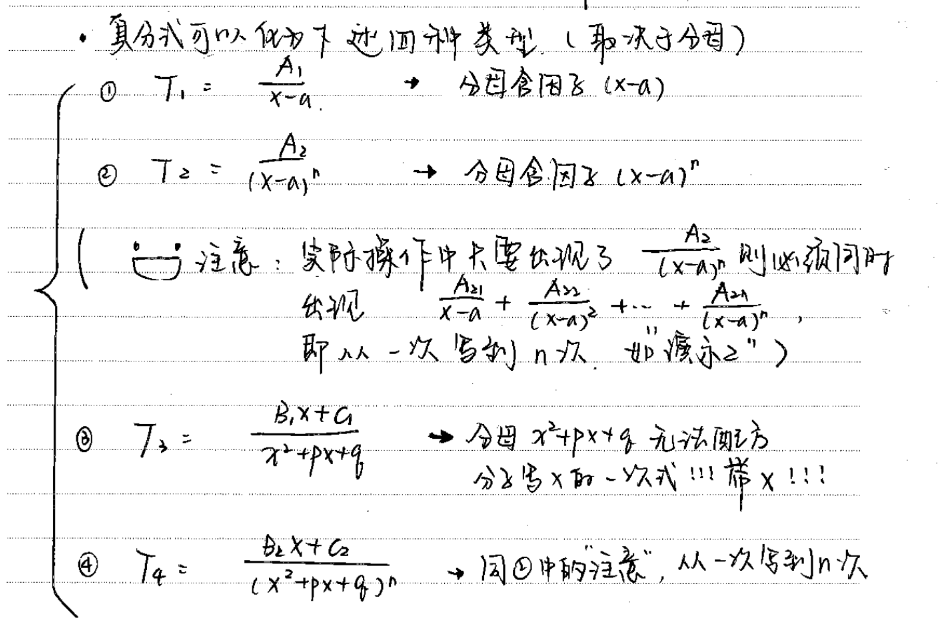 · 真分式可以化为下述四种类型（取决于分母）
① T₁ = A₁/(x-a) → 分母含因子 (x-a)
② T₂ = A₂/(x-a)ⁿ → 分母含因子 (x-a)ⁿ
( 注意：实际操作中只要出现了 A₂/(x-a)ⁿ 则必须同时
出现 A₂₁/(x-a) + A₂₂/(x-a)² + ··· + A₂ₙ/(x-a)ⁿ ,
即从一次写到 n 次. 如"演示2" )
③ T₃ = (B₁x+C₁)/(x²+px+q) → 分母 x²+px+q 无法配方
分子写 x 的一次式!!! 带 x !!!
④ T₄ = (B₂x+C₂)/(x²+px+q)ⁿ → 同②中的"注意", 从一次写到n次